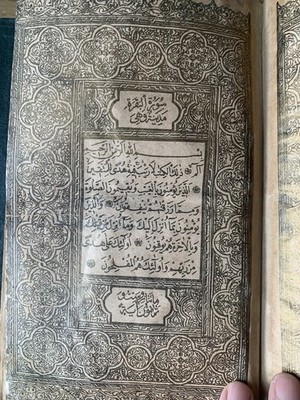 سورة البقرة
مدنية وهي
بِسْمِ اللهِ الرَّحْمٰنِ الرَّحِيمِ
الم ذٰلِكَ الْكِتَابُ لَا رَيْبَ فِيهِ هُدًى لِلْمُتَّقِينَ
الَّذِينَ يُؤْمِنُونَ بِالْغَيْبِ وَيُقِيمُونَ الصَّلٰوةَ
وَمِمَّا رَزَقْنَاهُمْ يُنْفِقُونَ وَالَّذِينَ
يُؤْمِنُونَ بِمَا أُنْزِلَ إِلَيْكَ وَمَا أُنْزِلَ مِنْ قَبْلِكَ
وَبِالْآخِرَةِ هُمْ يُوقِنُونَ أُولٰئِكَ عَلٰى هُدًى
مِنْ رَبِّهِمْ وَأُولٰئِكَ هُمُ الْمُفْلِحُونَ
ثمانون آية